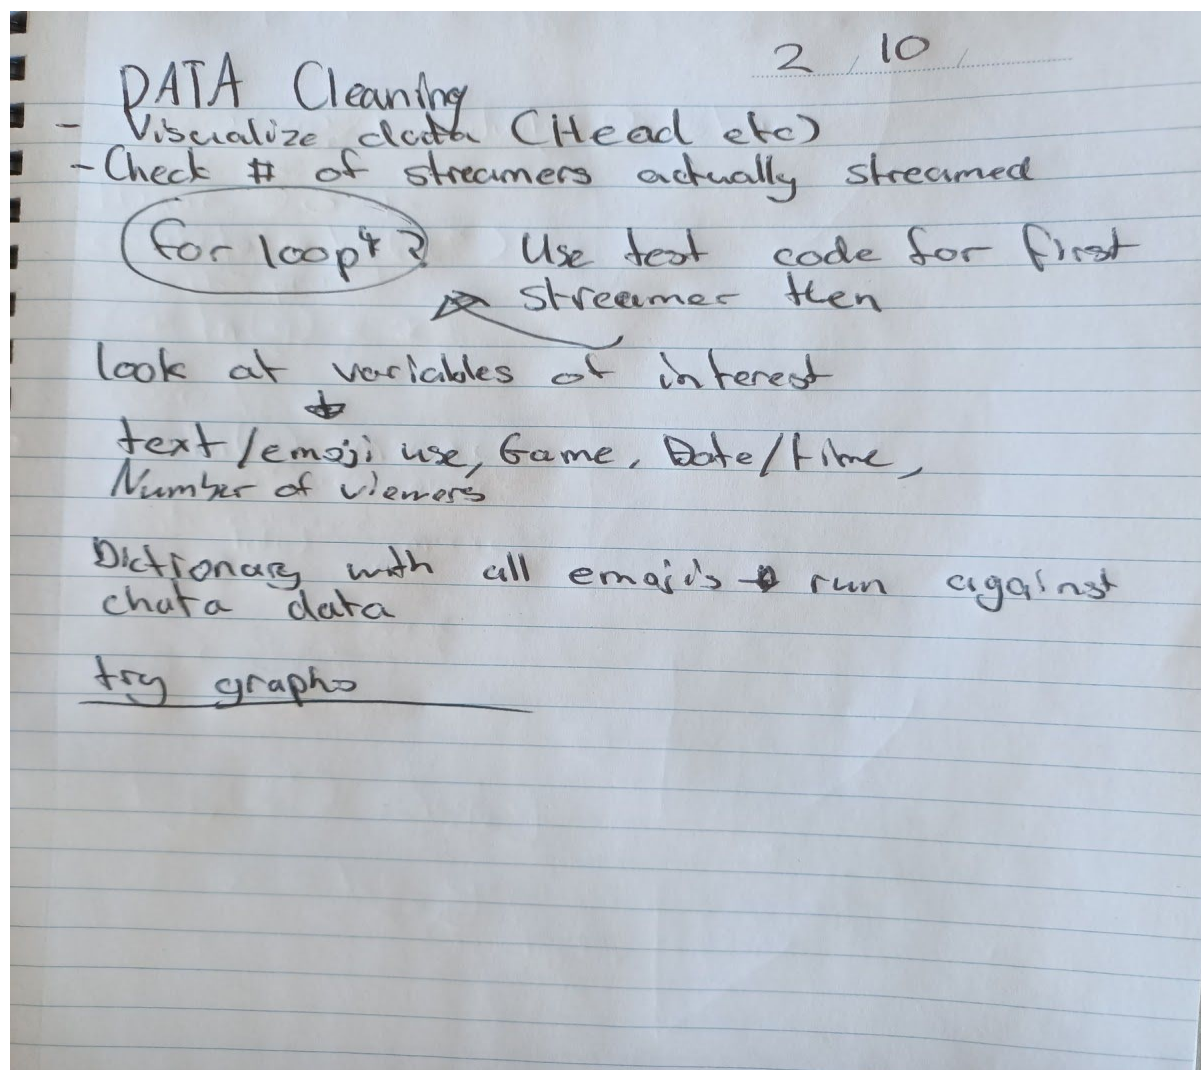 2 / 10 /
DATA Cleaning
- Visualize data (Head etc)
- Check # of streamers actually streamed
for loop ? Use test code for first
streamer then
look at variables of interest
text/emoji use, Game, Date/time,
Number of viewers
Dictionary with all emoji's → run against
chata data
try graphs